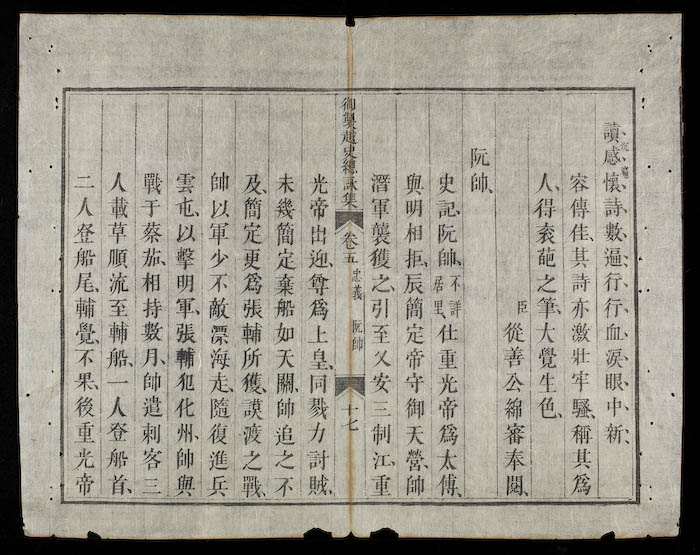 讀感懷詩數遍行行血淚眼中新
容傳佳其詩亦激壯牢騷、稱其爲
人、得衮葩之筆、大覺生色、
臣從善公綿審奉閱、
阮帥、
史記、阮帥、不詳居里、仕重光帝爲太傅、
與明相拒、辰簡定帝守御天營、帥
潛軍襲獲之、引至乂安三制江、重
御製越史總詠集 卷五 忠義 阮帥 十七
光帝出迎、尊爲上皇、同戮力討賊、
未幾簡定棄船如天關、帥追之不
及、簡定更爲張輔所獲、謨渡之戰、
帥以軍少不敵、漂海走、隨復進兵
雲屯、以擊明軍、張輔犯化州、帥與
戰于蔡茄、相持數月、帥遣刺客三
人載草順流至輔船、一人登船首、
二人登船尾、輔覺、不果、後重光帝